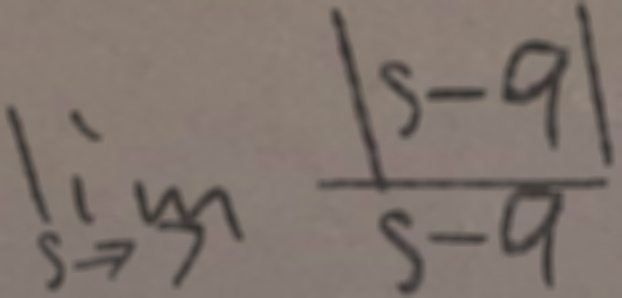 lim s→7 |s-9| / s-9